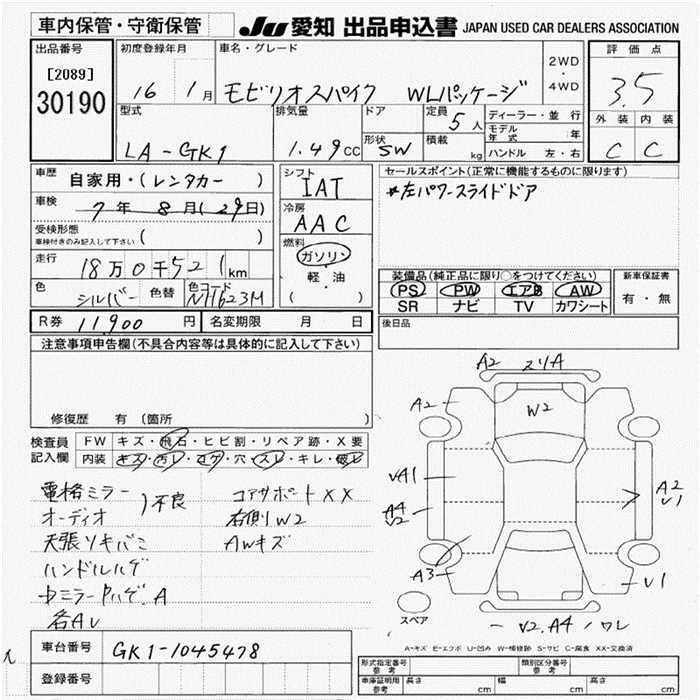 車内保管・守衛保管 JU 愛知 出品申込書 JAPAN USED CAR DEALERS ASSOCIATION
出品番号 初度登録年月 車名・グレード 2WD・4WD 評価点
[2089] 30190 16 1月 モビリオスパイク WLパッケージ 3.5
型式 排気量 ドア 定員 5人 ディーラー・並行 外装 内装
LA-GK1 1.49cc 形状 SW 積載 kg モデル年式 年 C C
ハンドル 左・右
車歴 自家用・(レンタカー ) シフト IAT セールスポイント(正常に機能するものに限ります)
車検 7年 8月(29日) 冷房 AAC *左パワースライドドア
受検形態 ( )
車検付きのみ記入して下さい
燃料 ガソリン 軽・油 ( )
走行 18万0千521km
装備品(純正品に限り○をつけてください) 新車保証書
PS PW エアB AW 有・無
SR ナビ TV カワシート
色 シルバー 色替 色コード NH623M
R券 11,900円 名変期限 月 日 後日品
注意事項申告欄(不具合内容等は具体的に記入して下さい)
修復歴 有 (箇所
検査員記入欄 FW キズ・飛石・ヒビ割・リペア跡・X要
内装 キズ・汚レ・コゲ・穴・スレ・キレ・破レ
電格ミラー )不良 コアサポートXX
オーディオ 右側W2
天張ツキバミ AWキズ
ハンドルハゲ
各AU
A2 スリA
A2 W2
VA1
A4 V2
A2 V1
A3 V1
スペア
V2.A4 ワレ
A-キズ E-エクボ U-凹み W-補修跡 S-サビ C-腐食 XX-交換済
車台番号 GK1-1045478
登録番号
形式指定番号 参考 類別区分番号 参考
車庫証明用 参考 長さ cm 幅 cm 高さ cm